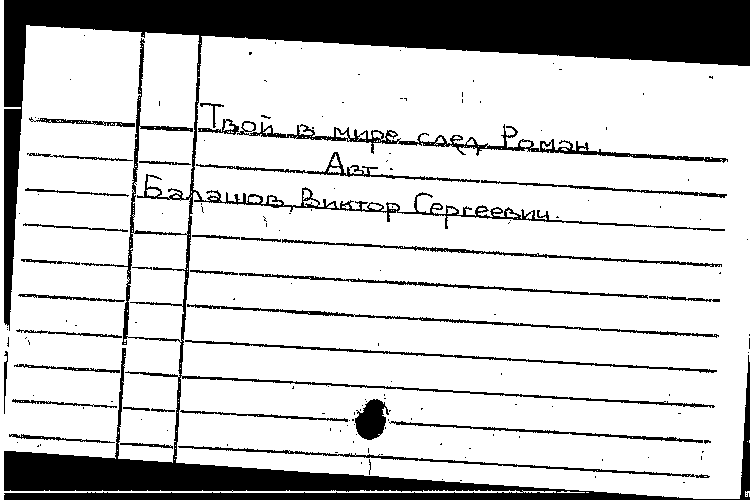 Твой в мире след Роман.
Авт.:
Балашов, Виктор Сергеевич.